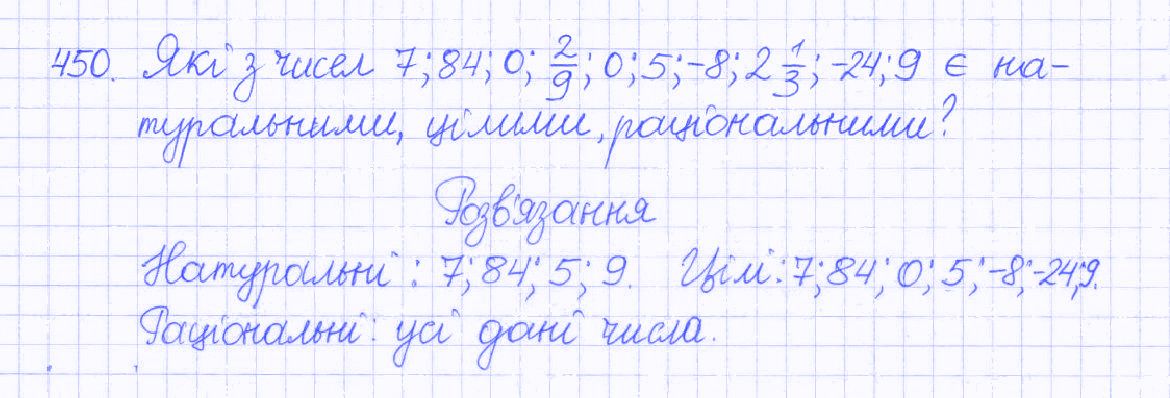 450. Які з чисел 7; 84; 0; 2/9; 0; 5; -8; 2 1/3; -24; 9 є на-
туральними, цілими, раціональними?
Розв'язання
Натуральні: 7; 84; 5; 9. Цілі: 7; 84; 0; 5; -8; -24; 9.
Раціональні: усі дані числа.